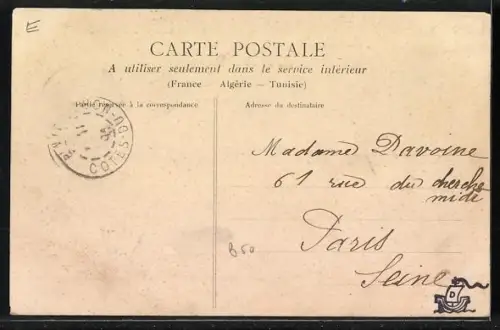 E
CARTE POSTALE
A utiliser seulement dans le service intérieur
(France — Algérie — Tunisie)
Partie réservée à la correspondance
Adresse du destinataire
COTES-DU-N
Madame Davoine
61 rue du cherche
midi
Paris
Seine
D